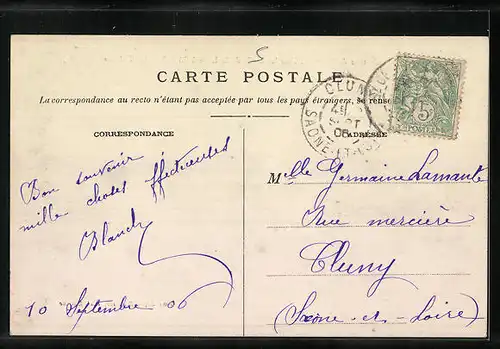 5
CARTE POSTALE
La correspondance au recto n'étant pas acceptée par tous les pays étrangers, se rense
CORRESPONDANCE
ADRESSE
CLUNY
SAONE-ET-
5
POSTES
Bon souvenir
mille choses affectueuses
Blanche
10 Septembre 06
Melle Germaine Lamante
Rue mercière
Cluny
(Saône-et-Loire)